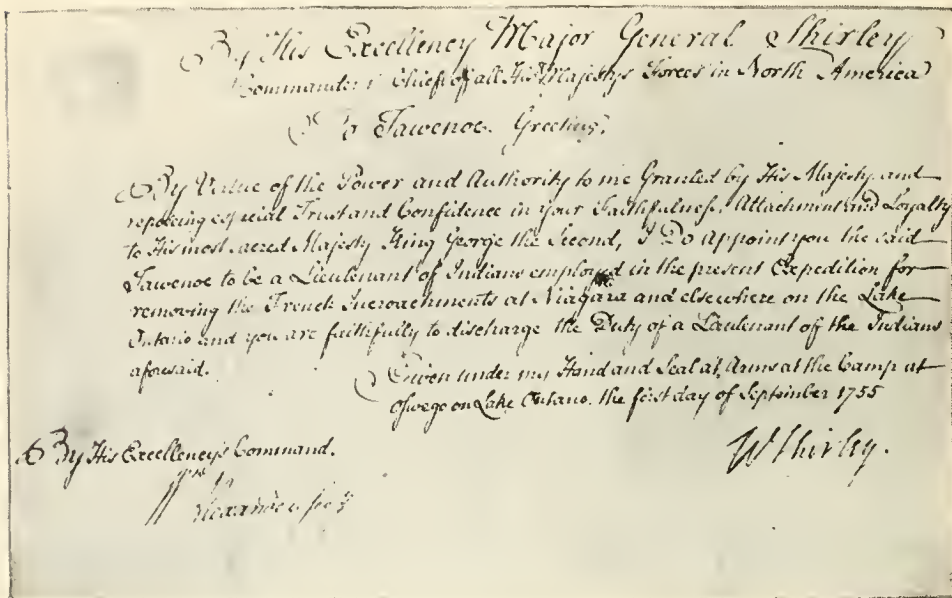 By His Excellency Major General Shirley
Commander in Chief of all His Majestys Forces in North America
To Tawenoe. Greeting.
By Virtue of the Power and Authority to me Granted by His Majesty, and
reposing especial Trust and Confidence in your Faithfulness, Attachment and Loyalty
to His most sacred Majesty King George the Second, I Do Appoint you the said
Tawenoe to be a Lieutenant of Indians employed in the present Expedition for
removing the French Incroachments at Niagara and elsewhere on the Lake
Ontario and you are faithfully to discharge the Duty of a Lieutenant of the Indians
aforesaid.
Given under my Hand and Seal at Arms at the Camp at
Oswego on Lake Ontario. the first day of September 1755
W Shirley.
By His Excellency's Command.
Wm Alexander Secy